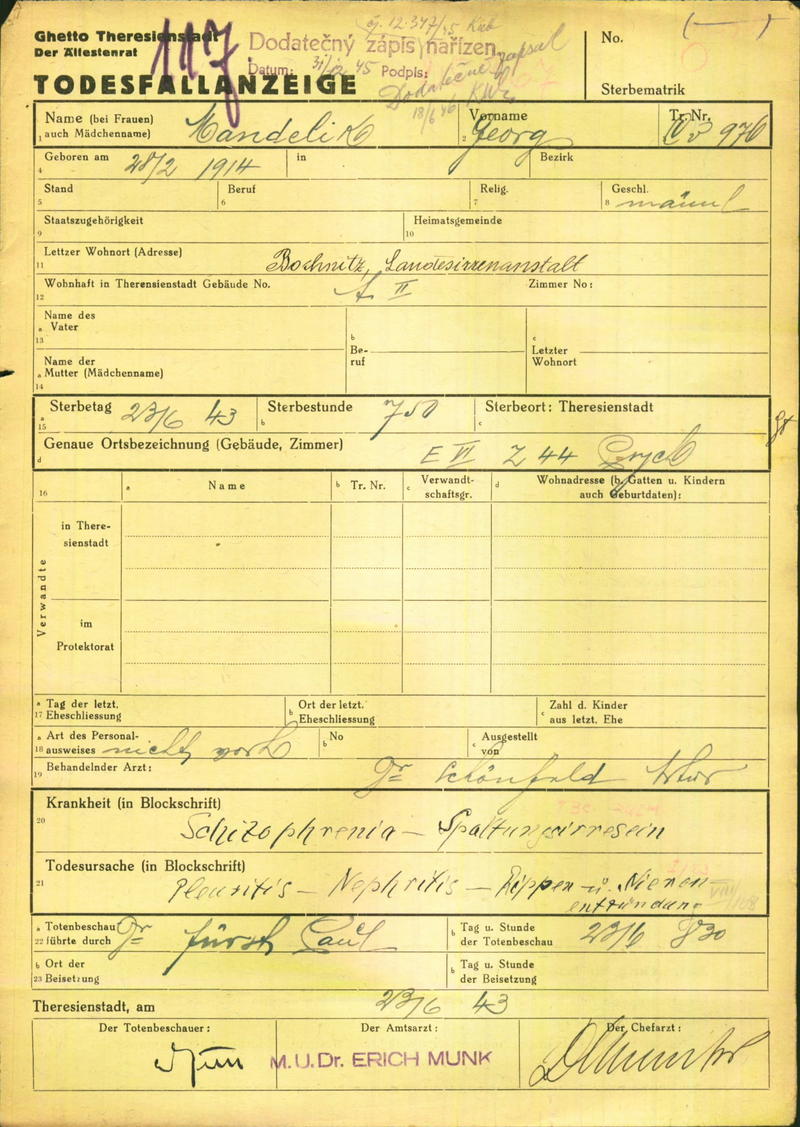 Ghetto Theresienstadt
Der Ältestenrat
TODESFALLANZEIGE
117
Dodatečný zápis nařízen
Datum: 31/12 45 Podpis:
Dodatečně zapsal
18/6 46
No. (—)
Sterbematrik
Name (bei Frauen) auch Mädchenname) Mandelik
1
Vorname Georg
Tr. Nr. 976
Geboren am 28/2 1914 in
4
Bezirk
Stand
5
Beruf
6
Relig.
7
Geschl. männl
8
Staatszugehörigkeit
9
Heimatsgemeinde
10
Lettzer Wohnort (Adresse) Bochnitz, Landesirrenanstalt
11
Wohnhaft in Therensienstadt Gebäude No. II Zimmer No:
12
Name des
a Vater
13
b Beruf
c Letzter Wohnort
Name der
a Mutter (Mädchenname)
14
a Sterbetag 23/6 43
15
b Sterbestunde 7 50
c Sterbeort: Theresienstadt
d Genaue Ortsbezeichnung (Gebäude, Zimmer) E VI Z 44
16
a Name
b Tr. Nr.
c Verwandtschaftsgr.
d Wohnadresse (b. Gatten u. Kindern auch Geburtdaten):
Verwandte
in Theresienstadt
im Protektorat
a Tag der letzt.
17 Eheschliessung
b Ort der letzt. Eheschliessung
c Zahl d. Kinder aus letzt. Ehe
a Art des Personal-
18 ausweises nicht vorh
b No
c Ausgestellt von
Behandelnder Arzt: Dr Schönfeld Artur
19
Krankheit (in Blockschrift)
20
Schizophrenia — Spaltungsirresein
Todesursache (in Blockschrift)
21
Pleuritis — Nephritis — Rippen- u. Nieren-
entzündung
a Totenbeschau
22 führte durch Dr Fürst Paul
b Tag u. Stunde der Totenbeschau 23/6 8 30
b Ort der
23 Beisetzung
b Tag u. Stunde der Beisetzung
Theresienstadt, am 23/6 43
Der Totenbeschauer:
Der Amtsarzt:
M.U.Dr. ERICH MUNK
Der Chefarzt: